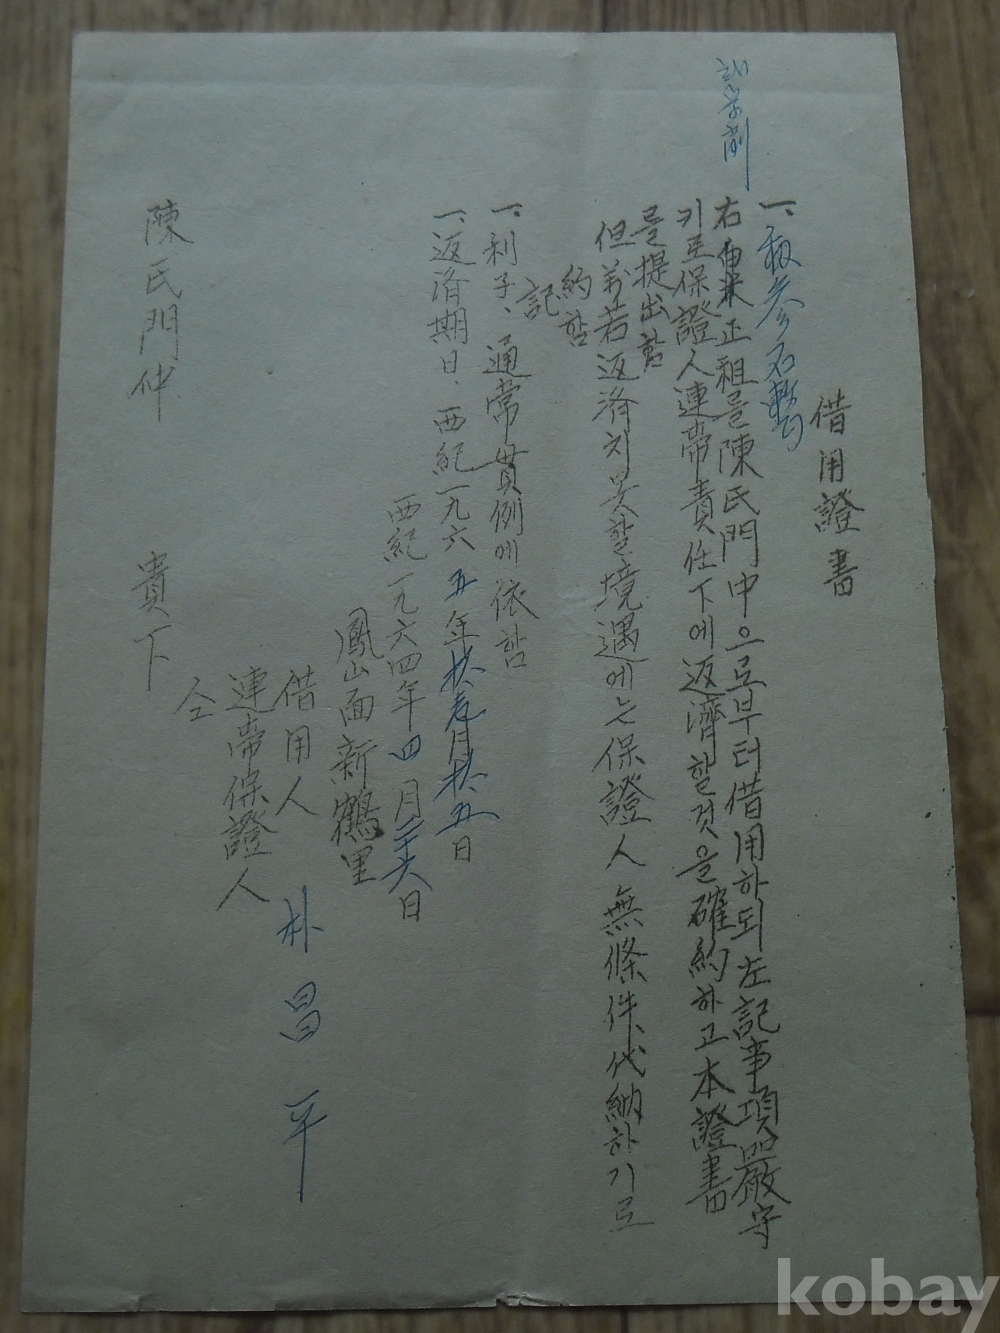 借用證書
一、租參石整
右白米正租를陳氏門中으로부터借用하되左記事項嚴守
키로保證人連帶責任下에返濟할것을確約하고本證書
를提出함
但萬若返済치못할境遇에는保證人無條件代納하기로
約함
記
一、利子、通常貫例에依함
一、返済期日、西紀一九六五年拾壱月拾五日
西紀一九六四年四月二十六日
鳳山面新鶴里
借用人 朴昌平
連帶保證人
仝
陳氏門仲 貴下
kobay